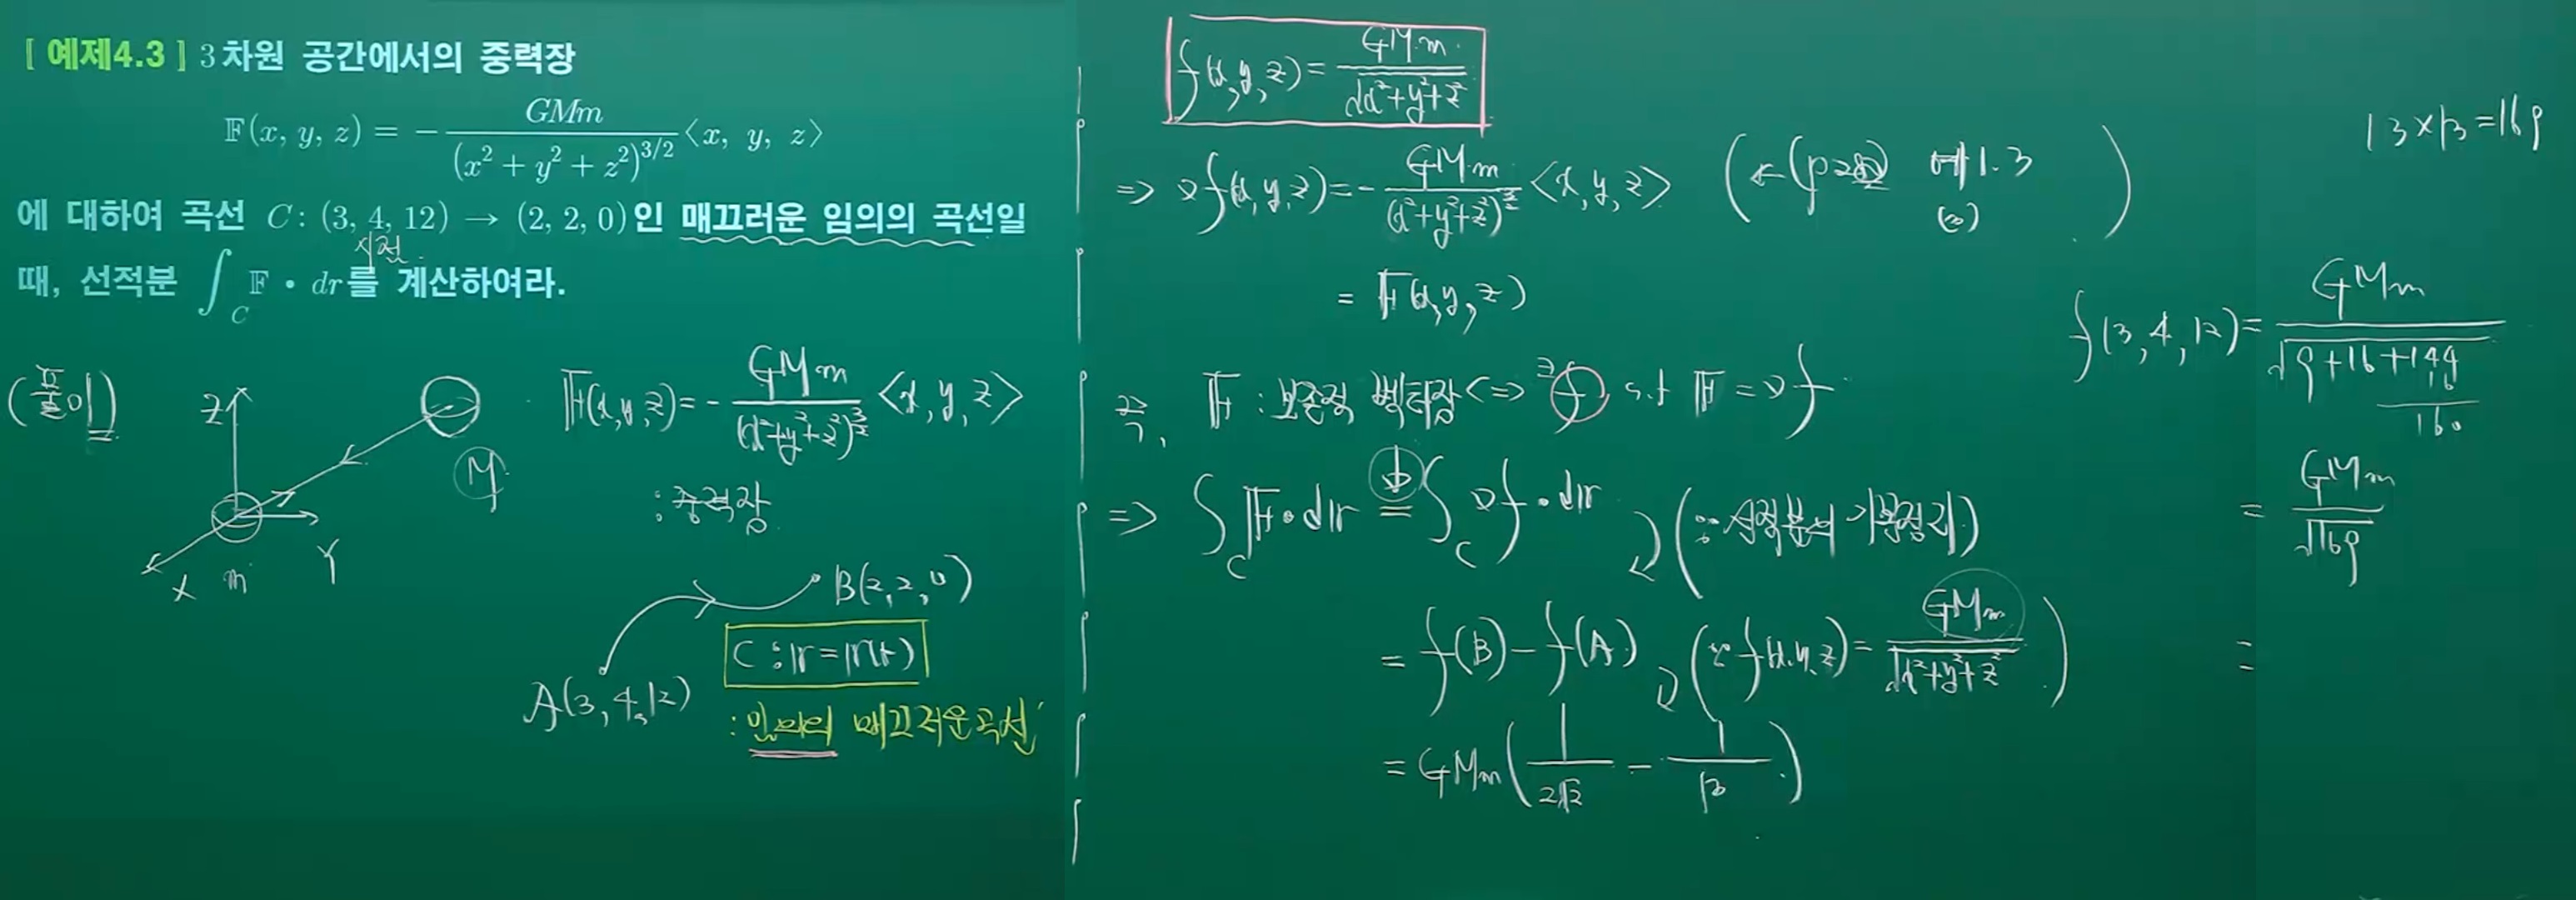 [ 예제4.3 ] 3차원 공간에서의 중력장
𝔽(x, y, z) = − GMm / (x² + y² + z²)^{3/2} ⟨x, y, z⟩
에 대하여 곡선 C : (3, 4, 12) → (2, 2, 0)인 매끄러운 임의의 곡선일
때, 선적분 ∫_C 𝔽 • dr를 계산하여라.
(풀이)
Z
M
X m Y
𝔽(x,y,z) = − GMm / (x²+y²+z²)^{3/2} <x, y, z>
: 중력장
B(2, 2, 0)
C : r = r(t)
A(3, 4, 12)
: 임의의 매끄러운 곡선
f(x,y,z) = GMm / √(x²+y²+z²)
=> ∇f(x,y,z) = − GMm / (x²+y²+z²)^{3/2} <x, y, z>
예1.3
(3)
= 𝔽(x,y,z)
즉, 𝔽 : 보존적 벡터장 <=> ∃f s.t 𝔽 = ∇f
=> ∫_C 𝔽 • dr = ∫_C ∇f • dr (∵ 선적분의 기본정리)
= f(B) − f(A) (∵ f(x,y,z) = GMm / √(x²+y²+z²))
= GMm ( 1/2√2 − 1/13 )
13×13=169
f(3, 4, 12) = GMm / √(9+16+144)
16
160
= GMm / √169
=